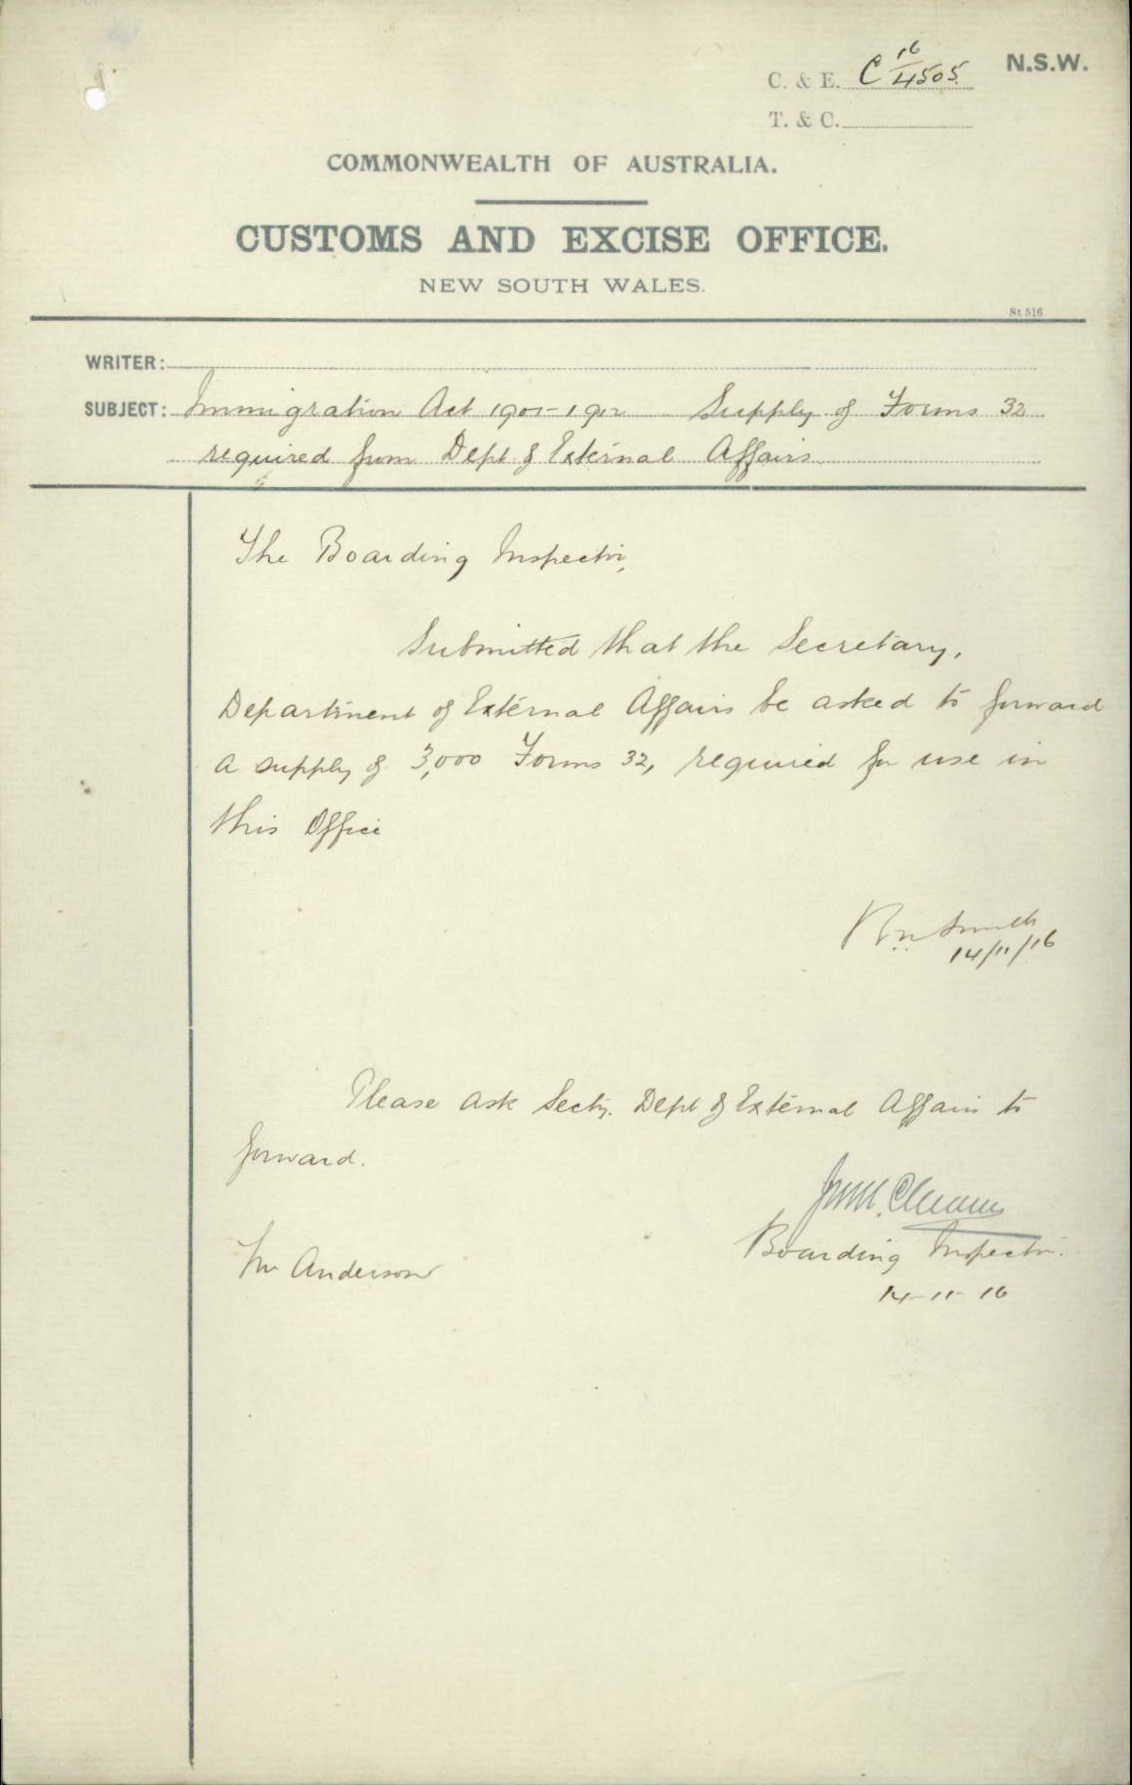 C. & E. C 16/4505 N.S.W.
T. & C.
COMMONWEALTH OF AUSTRALIA.
CUSTOMS AND EXCISE OFFICE.
NEW SOUTH WALES.
St. 516
WRITER:
SUBJECT: Immigration Act 1901-1912 Supply of Forms 32
required from Dept of External Affairs
The Boarding Inspector,
Submitted that the Secretary,
Department of External Affairs be asked to forward
a supply of 3,000 Forms 32, required for use in
this Office
Smith
14/11/16
Please ask Secty. Dept of External Affairs to
forward.
Boarding Inspector.
Mr Anderson
14-11-16